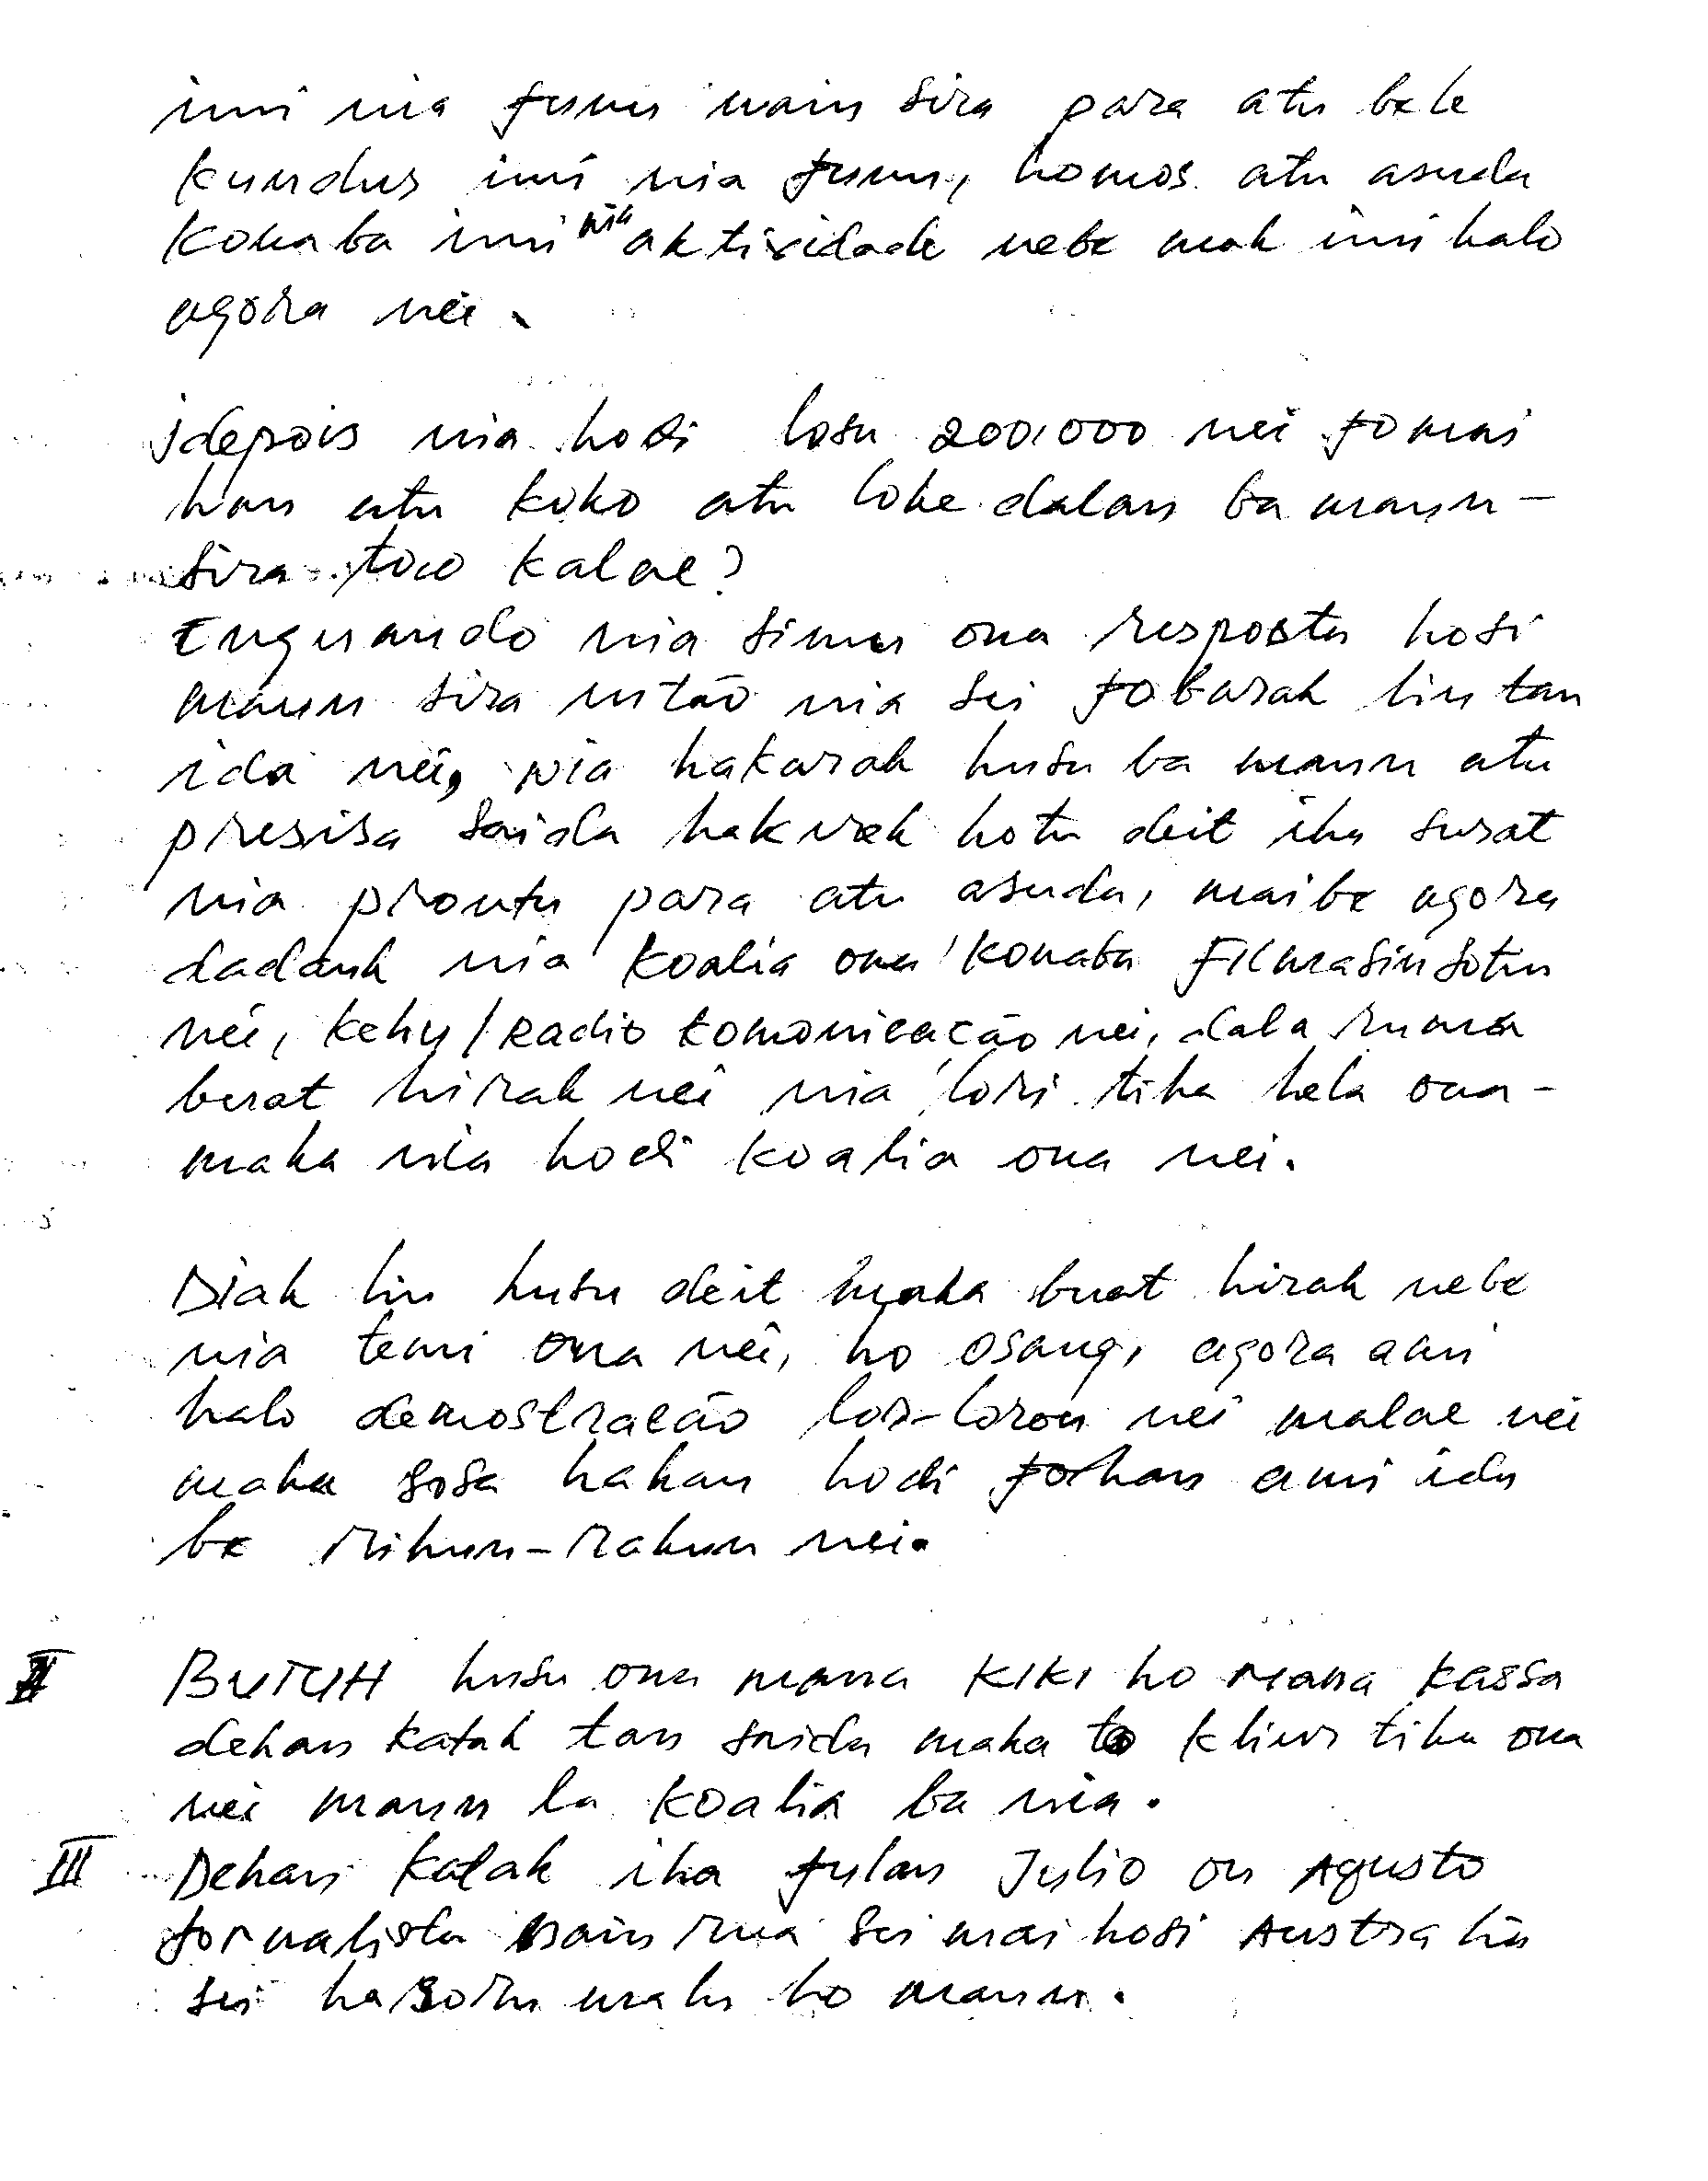 imi nia funu nain sira para atu bele
kundus imi nia funu, homos atu asuda
konaba imi nia aktividade nebe mak imi halo
agora nei.
idepois nia hosi losu 200.000 nei fo mai
hau atu koko atu loke dalan ba maun-
sira too kalae?
Enguando nia simu ona resposta hosi
maun sira intão nia sei fo barak liu tan
ida nei, nia hakarak husu ba maun atu
presisa saida hakrek hotu deit iha surat
nia prontu para atu asuda, maibe agora
dadauk nia koalia ona konaba Filmasin sotu
nei, keky/Radio komonicação nei, dala ruma
buat hirak nei nia lori tiha hela ona-
maka nia hodi koalia ona nei.
Diak liu husu deit maka buat hirak nebe
nia temi ona nei, ho osang, agora ami
halo demostração lor-loron nei malae nei
maka sosa hahan hodi fo han ami idu
be rihun-rahun nei.
II BUTUH husu ona mana KIKI ho mana kassa
dehan katak tan saida maka to kleur tiha ona
nei maun la koalia ba nia.
III Dehan katak iha fulan Julio ou Agusto
jornalista nain rua sei mai hosi Australia
sei hasoru malu ho maun.